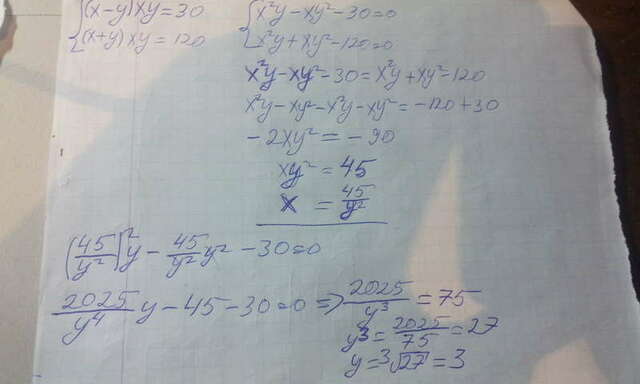 {(x-y)xy=30
{(x+y)xy=120
{x²y-xy²-30=0
{x²y+xy²-120=0
x²y-xy²-30=x²y+xy²-120
x²y-xy²-x²y-xy²=-120+30
-2xy²=-90
xy²=45
x=45/y²
(45/y²)²y-45/y² y²-30=0
2025/y⁴ y-45-30=0=>2025/y³=75
y³=2025/75=27
y=³√27=3